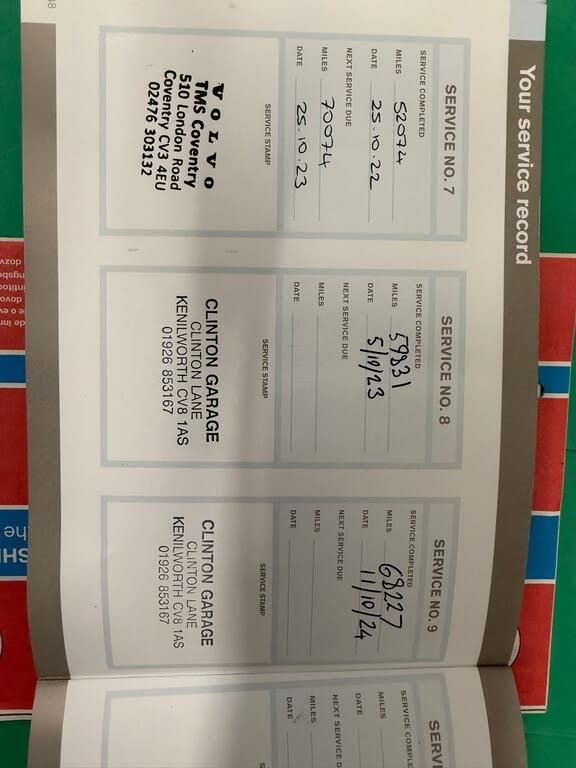 Your service record
SERVICE NO. 7
SERVICE COMPLETED
MILES 52074
DATE 25.10.22
NEXT SERVICE DUE
MILES 70074
DATE 25.10.23
SERVICE STAMP
VOLVO
TMS Coventry
510 London Road
Coventry CV3 4EU
02476 303132
SERVICE NO. 8
SERVICE COMPLETED
MILES 59831
DATE 5/10/23
NEXT SERVICE DUE
MILES
DATE
SERVICE STAMP
CLINTON GARAGE
CLINTON LANE
KENILWORTH CV8 1AS
01926 853167
SERVICE NO. 9
SERVICE COMPLETED
MILES 68227
DATE 11/10/24
NEXT SERVICE DUE
MILES
DATE
SERVICE STAMP
CLINTON GARAGE
CLINTON LANE
KENILWORTH CV8 1AS
01926 853167
SERV
SERVICE COMPLE
MILES
DATE
NEXT SERVICE D
MILES
DATE
SERVICE STAMP